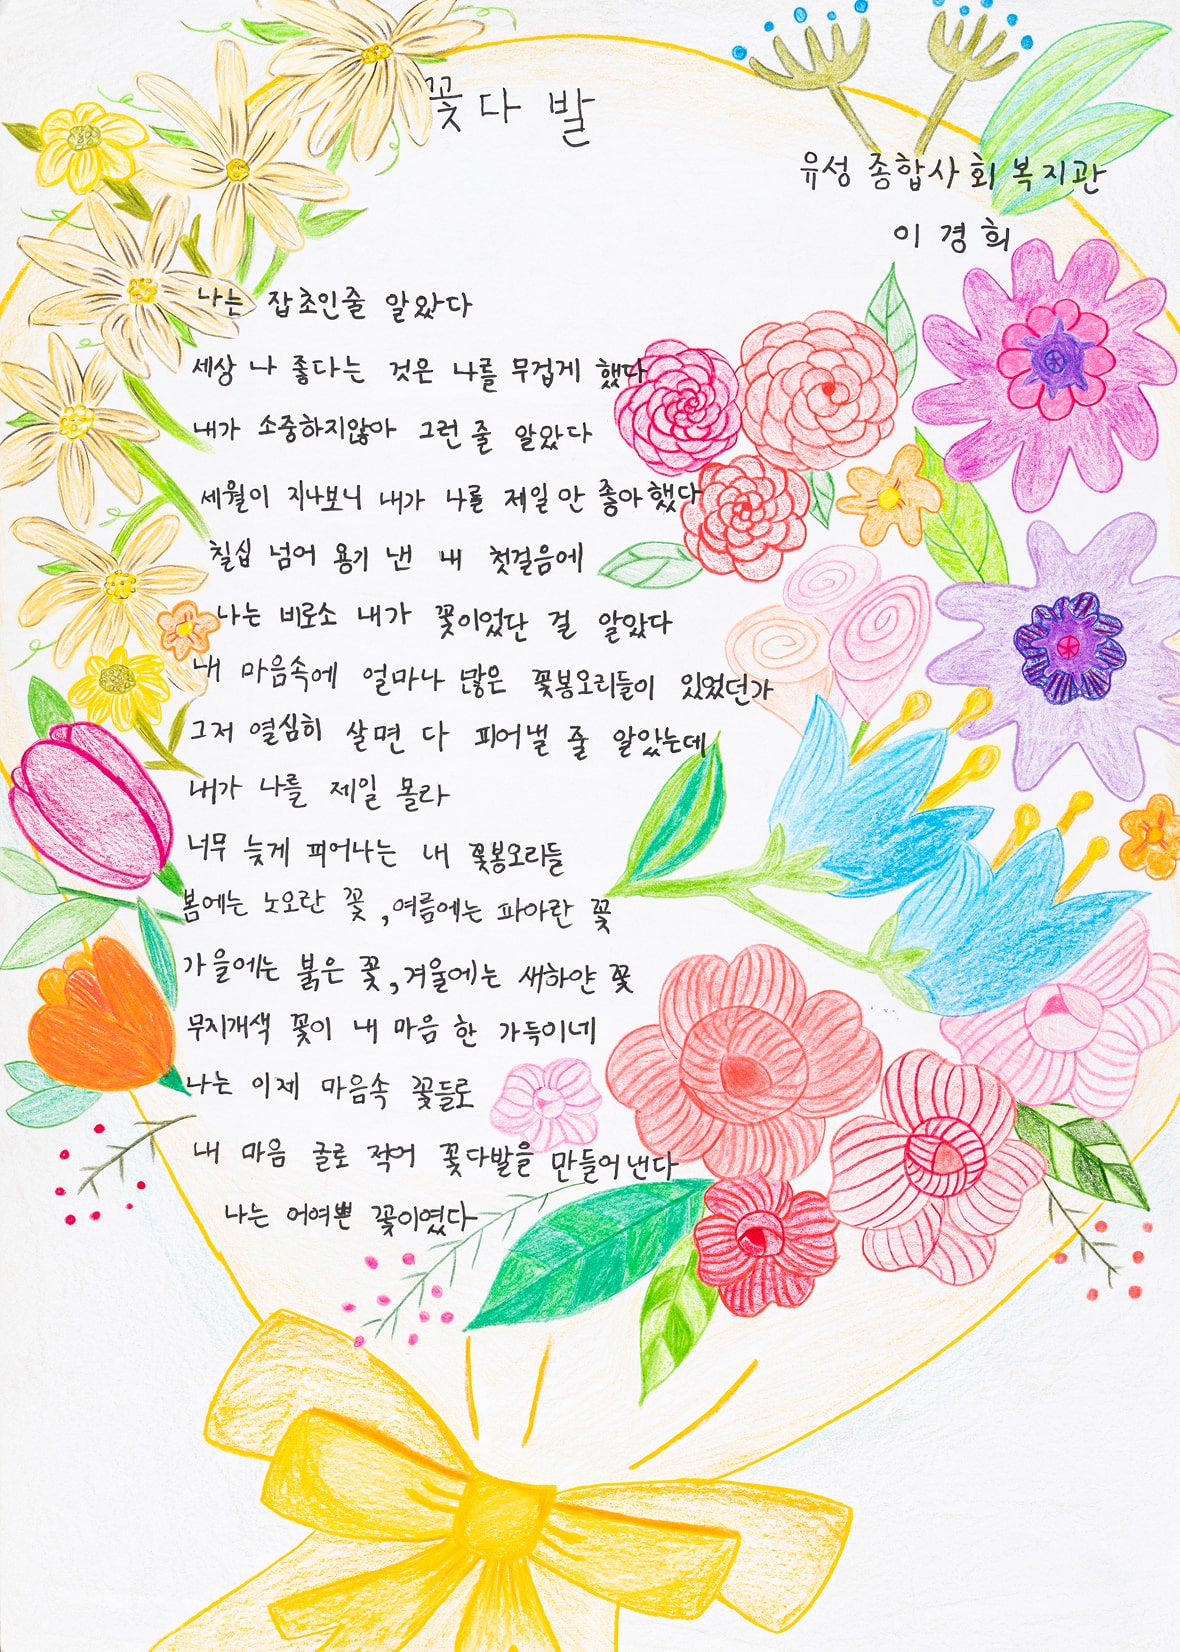 꽃다발
유성 종합사회복지관
이경희
나는 잡초인줄 알았다
세상 나 좋다는 것은 나를 무겁게 했다
내가 소중하지않아 그런 줄 알았다
세월이 지나보니 내가 나를 제일 안 좋아했다
칠십 넘어 용기 낸 내 첫걸음에
나는 비로소 내가 꽃이었단 걸 알았다
내 마음속에 얼마나 많은 꽃봉오리들이 있었던가
그저 열심히 살면 다 피어낼 줄 알았는데
내가 나를 제일 몰라
너무 늦게 피어나는 내 꽃봉오리들
봄에는 노오란 꽃, 여름에는 파아란 꽃
가을에는 붉은 꽃, 겨울에는 새하얀 꽃
무지개색 꽃이 내 마음 한 가득이네
나는 이제 마음속 꽃들로
내 마음 글로 적어 꽃다발을 만들어낸다
나는 어여쁜 꽃이였다